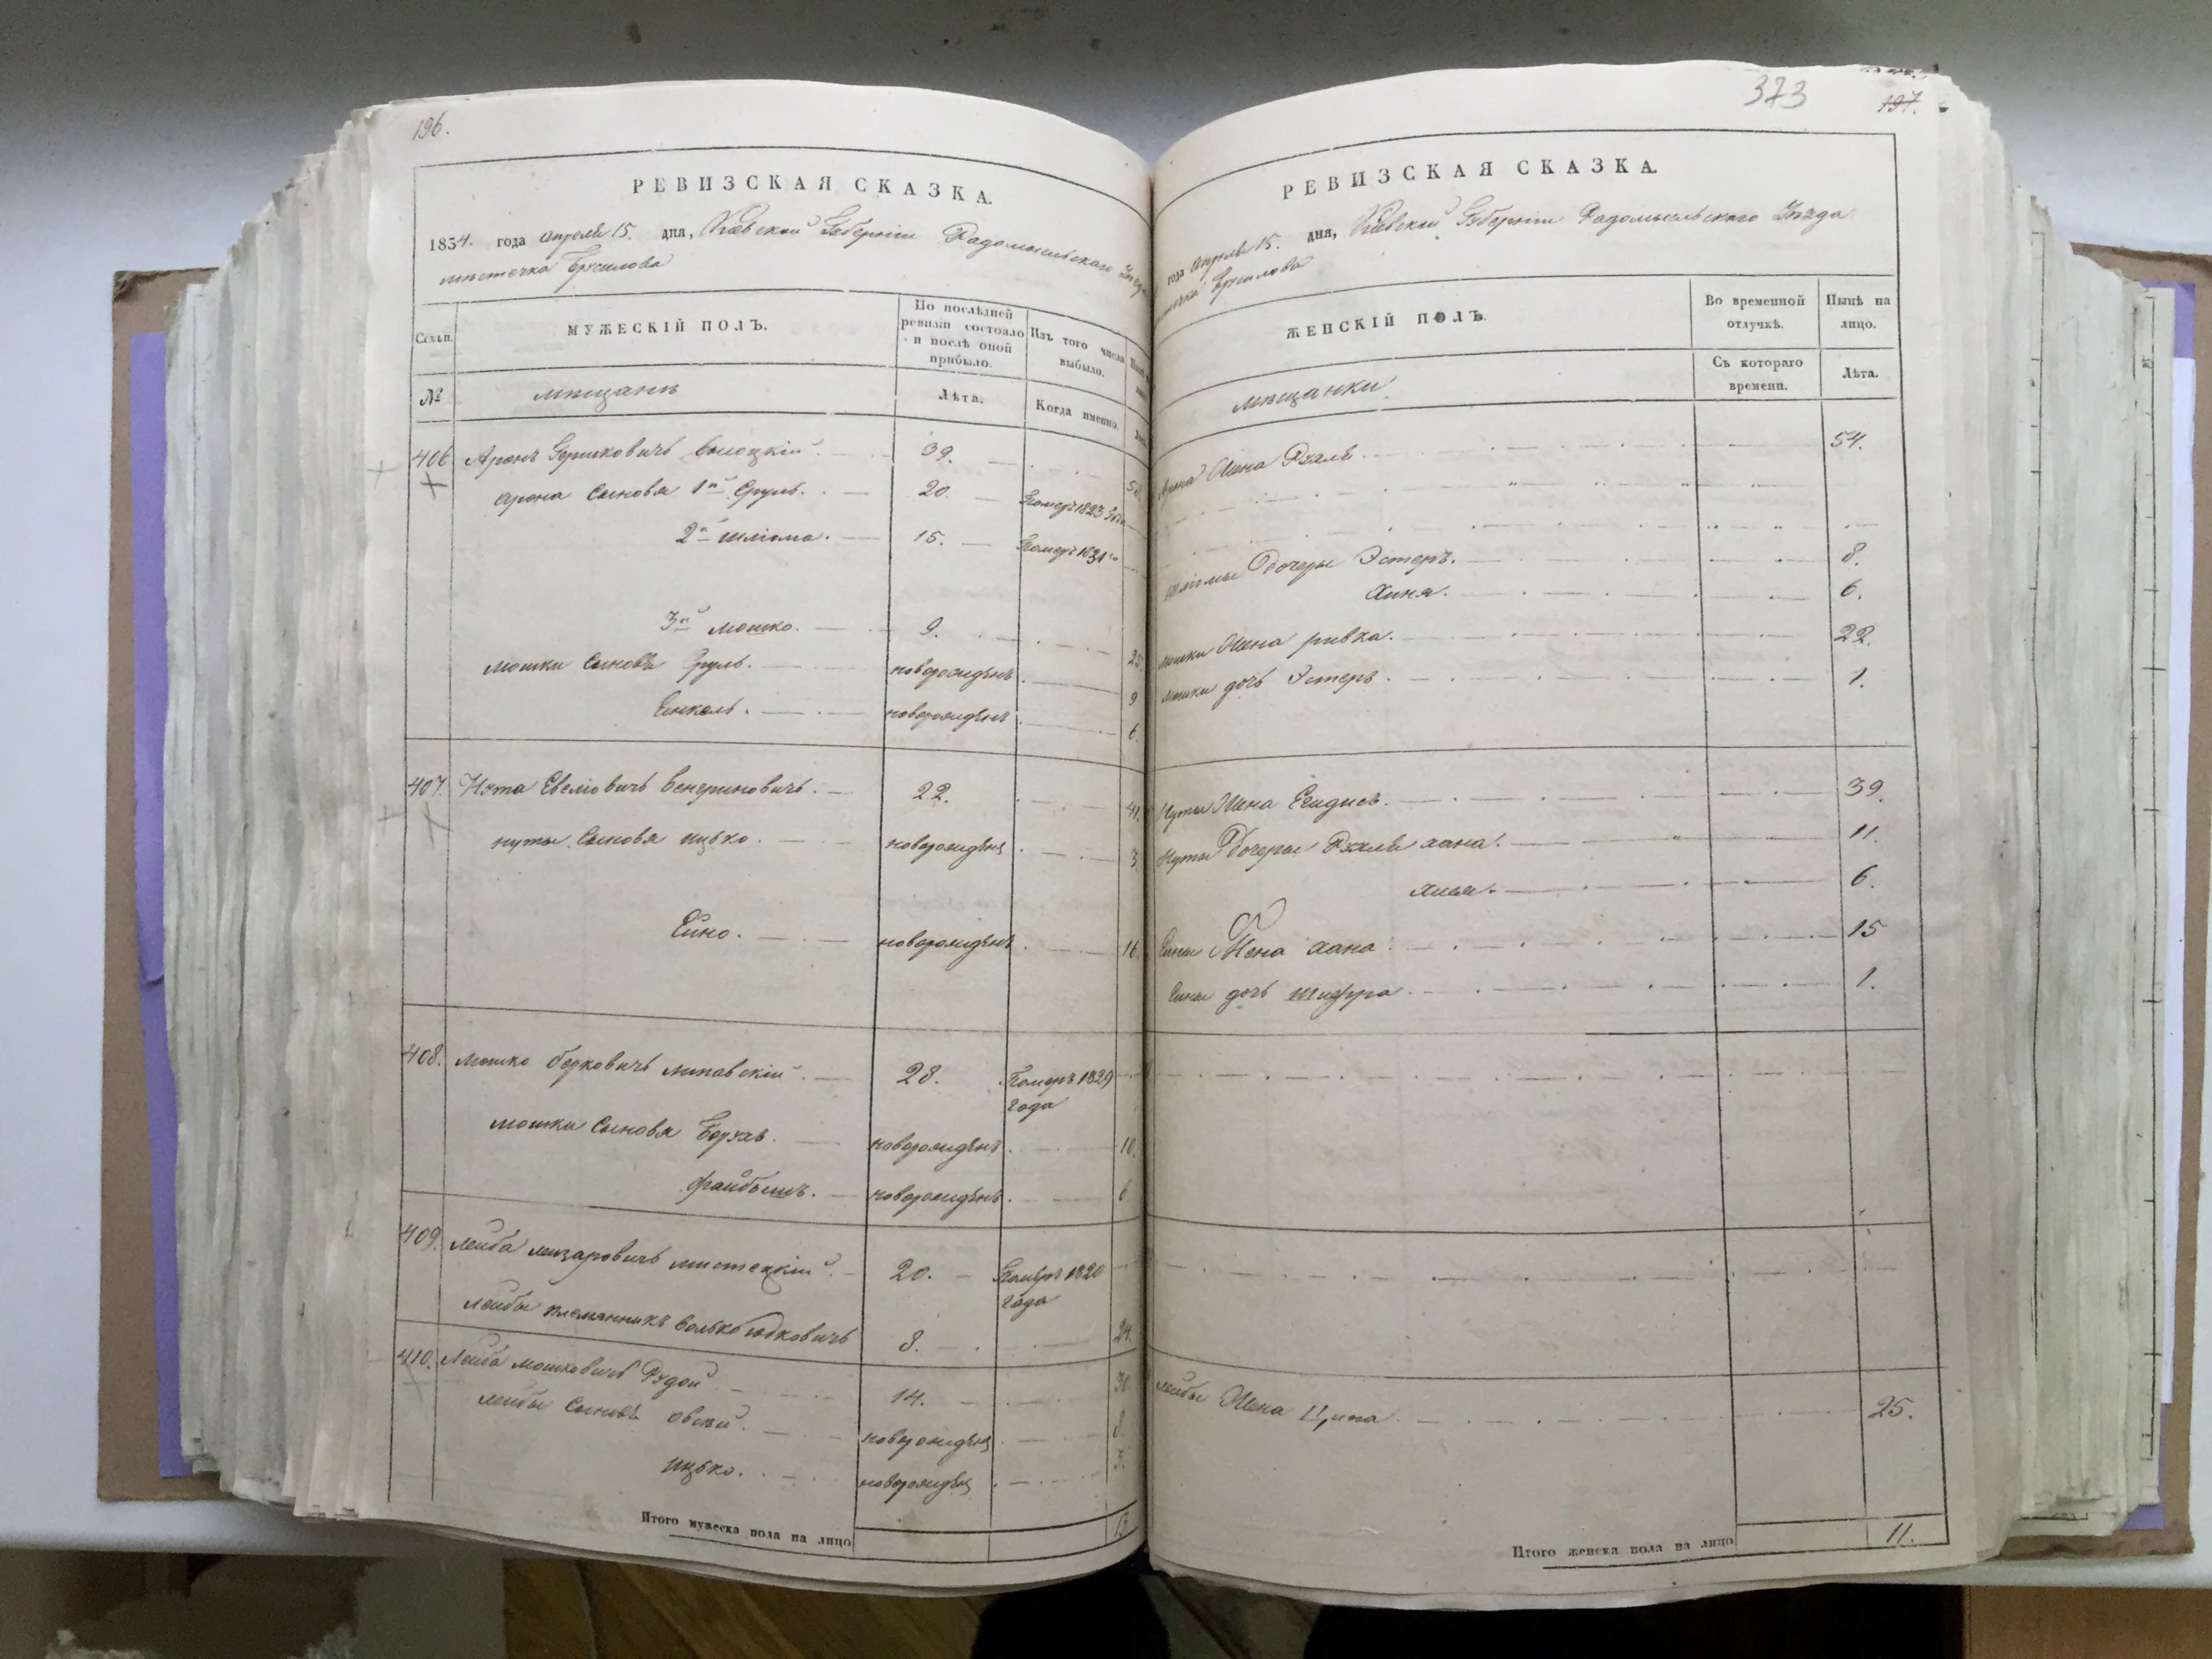 196.
РЕВИЗСКАЯ СКАЗКА.
1834. года апреля 15. дня, Кіевской Губерніи Радомысльскаго Уезда
местечка Брусилова
Семьи. МУЖЕСКІЙ ПОЛЪ. По послѣдней ревизіи состояло и послѣ оной прибыло. Изъ того числа выбыло.
№ мещане Лѣта. Когда именно. Лѣта
406 Аронъ Гершковичъ 39. 50.
Арона Сыновя 1й Сруль. 20. Померъ 1823 года
2й Шліома. 15. Померъ 1831 го
3й Мошко. 9. 25
Мошки Сыновя Сруль. новорожденъ 9
Еинкель. новорожденъ 6.
407. Нута Евеліовичъ Венгриновичъ. 22. 41.
Нуты Сыновя Ицько. новорожден 3
Еино. новорожденъ 16.
408. Мошко Берковичъ Липавскій. 28. Померъ 1829 года
Мошки Сыновя Борухъ. новорожденъ. 10.
Файбышъ. новорожденъ. 6
409. Лейба Лейзаровичъ Мистецкій. 20. Померъ 1820 года
Лейбы племянникъ Волько Юдковичъ 8. 24.
410. Лейба Мошковичъ Рудой 14. 30
Лейбы Сыновя Овсей. новорожден 8.
Ицько. новорожден 3.
Итого мужеска пола на лицо 13
373
197.
РЕВИЗСКАЯ СКАЗКА.
года апреля 15. дня, Кіевской Губерніи Радомысльскаго Уезда
Брусилова
ЖЕНСКІЙ ПОЛЪ. Во временной отлучкѣ. Нынѣ на лицо.
мещанки Съ котораго времени. Лѣта.
Арона Жена Рухля. 54.
Шліомы Дочеры Эстеръ. 8.
Хиня. 6.
Мошки Жена Ривка. 22.
Мошки дочь Эстеръ. 1.
Нуты Жена Егидись. 39.
Нуты Дочеры Рухля Хана. 11.
Хиня. 6.
Еины Жена Хана. 15
Еины дочь Шифра. 1.
Лейбы Жена Ципа. 25.
Итого женска пола на лицо 11.